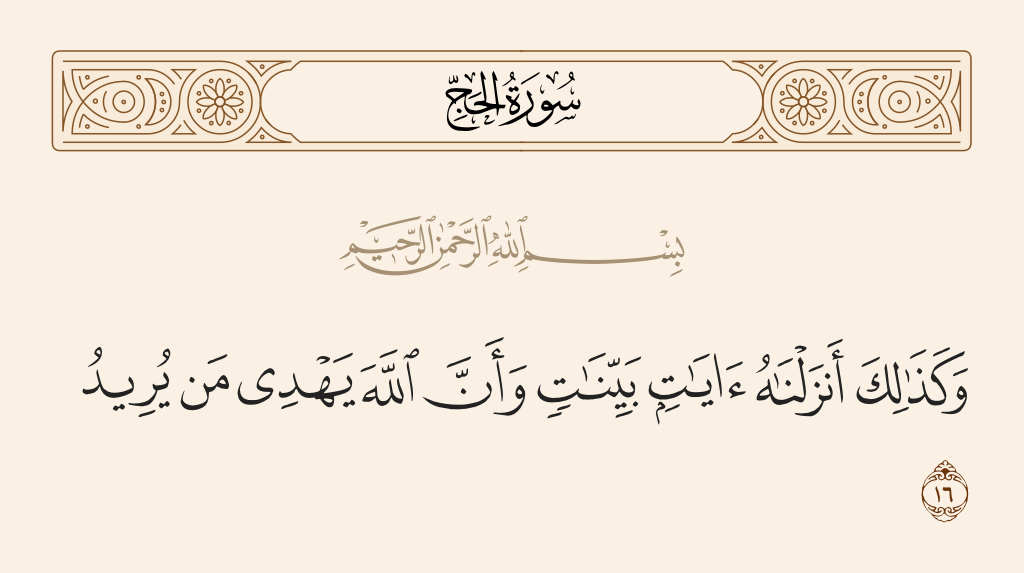 سُورَةُ الحَجِّ
بِسْمِ ٱللَّهِ ٱلرَّحْمَٰنِ ٱلرَّحِيمِ
وَكَذَٰلِكَ أَنزَلْنَٰهُ ءَايَٰتٍۭ بَيِّنَٰتٍ وَأَنَّ ٱللَّهَ يَهْدِى مَن يُرِيدُ
١٦